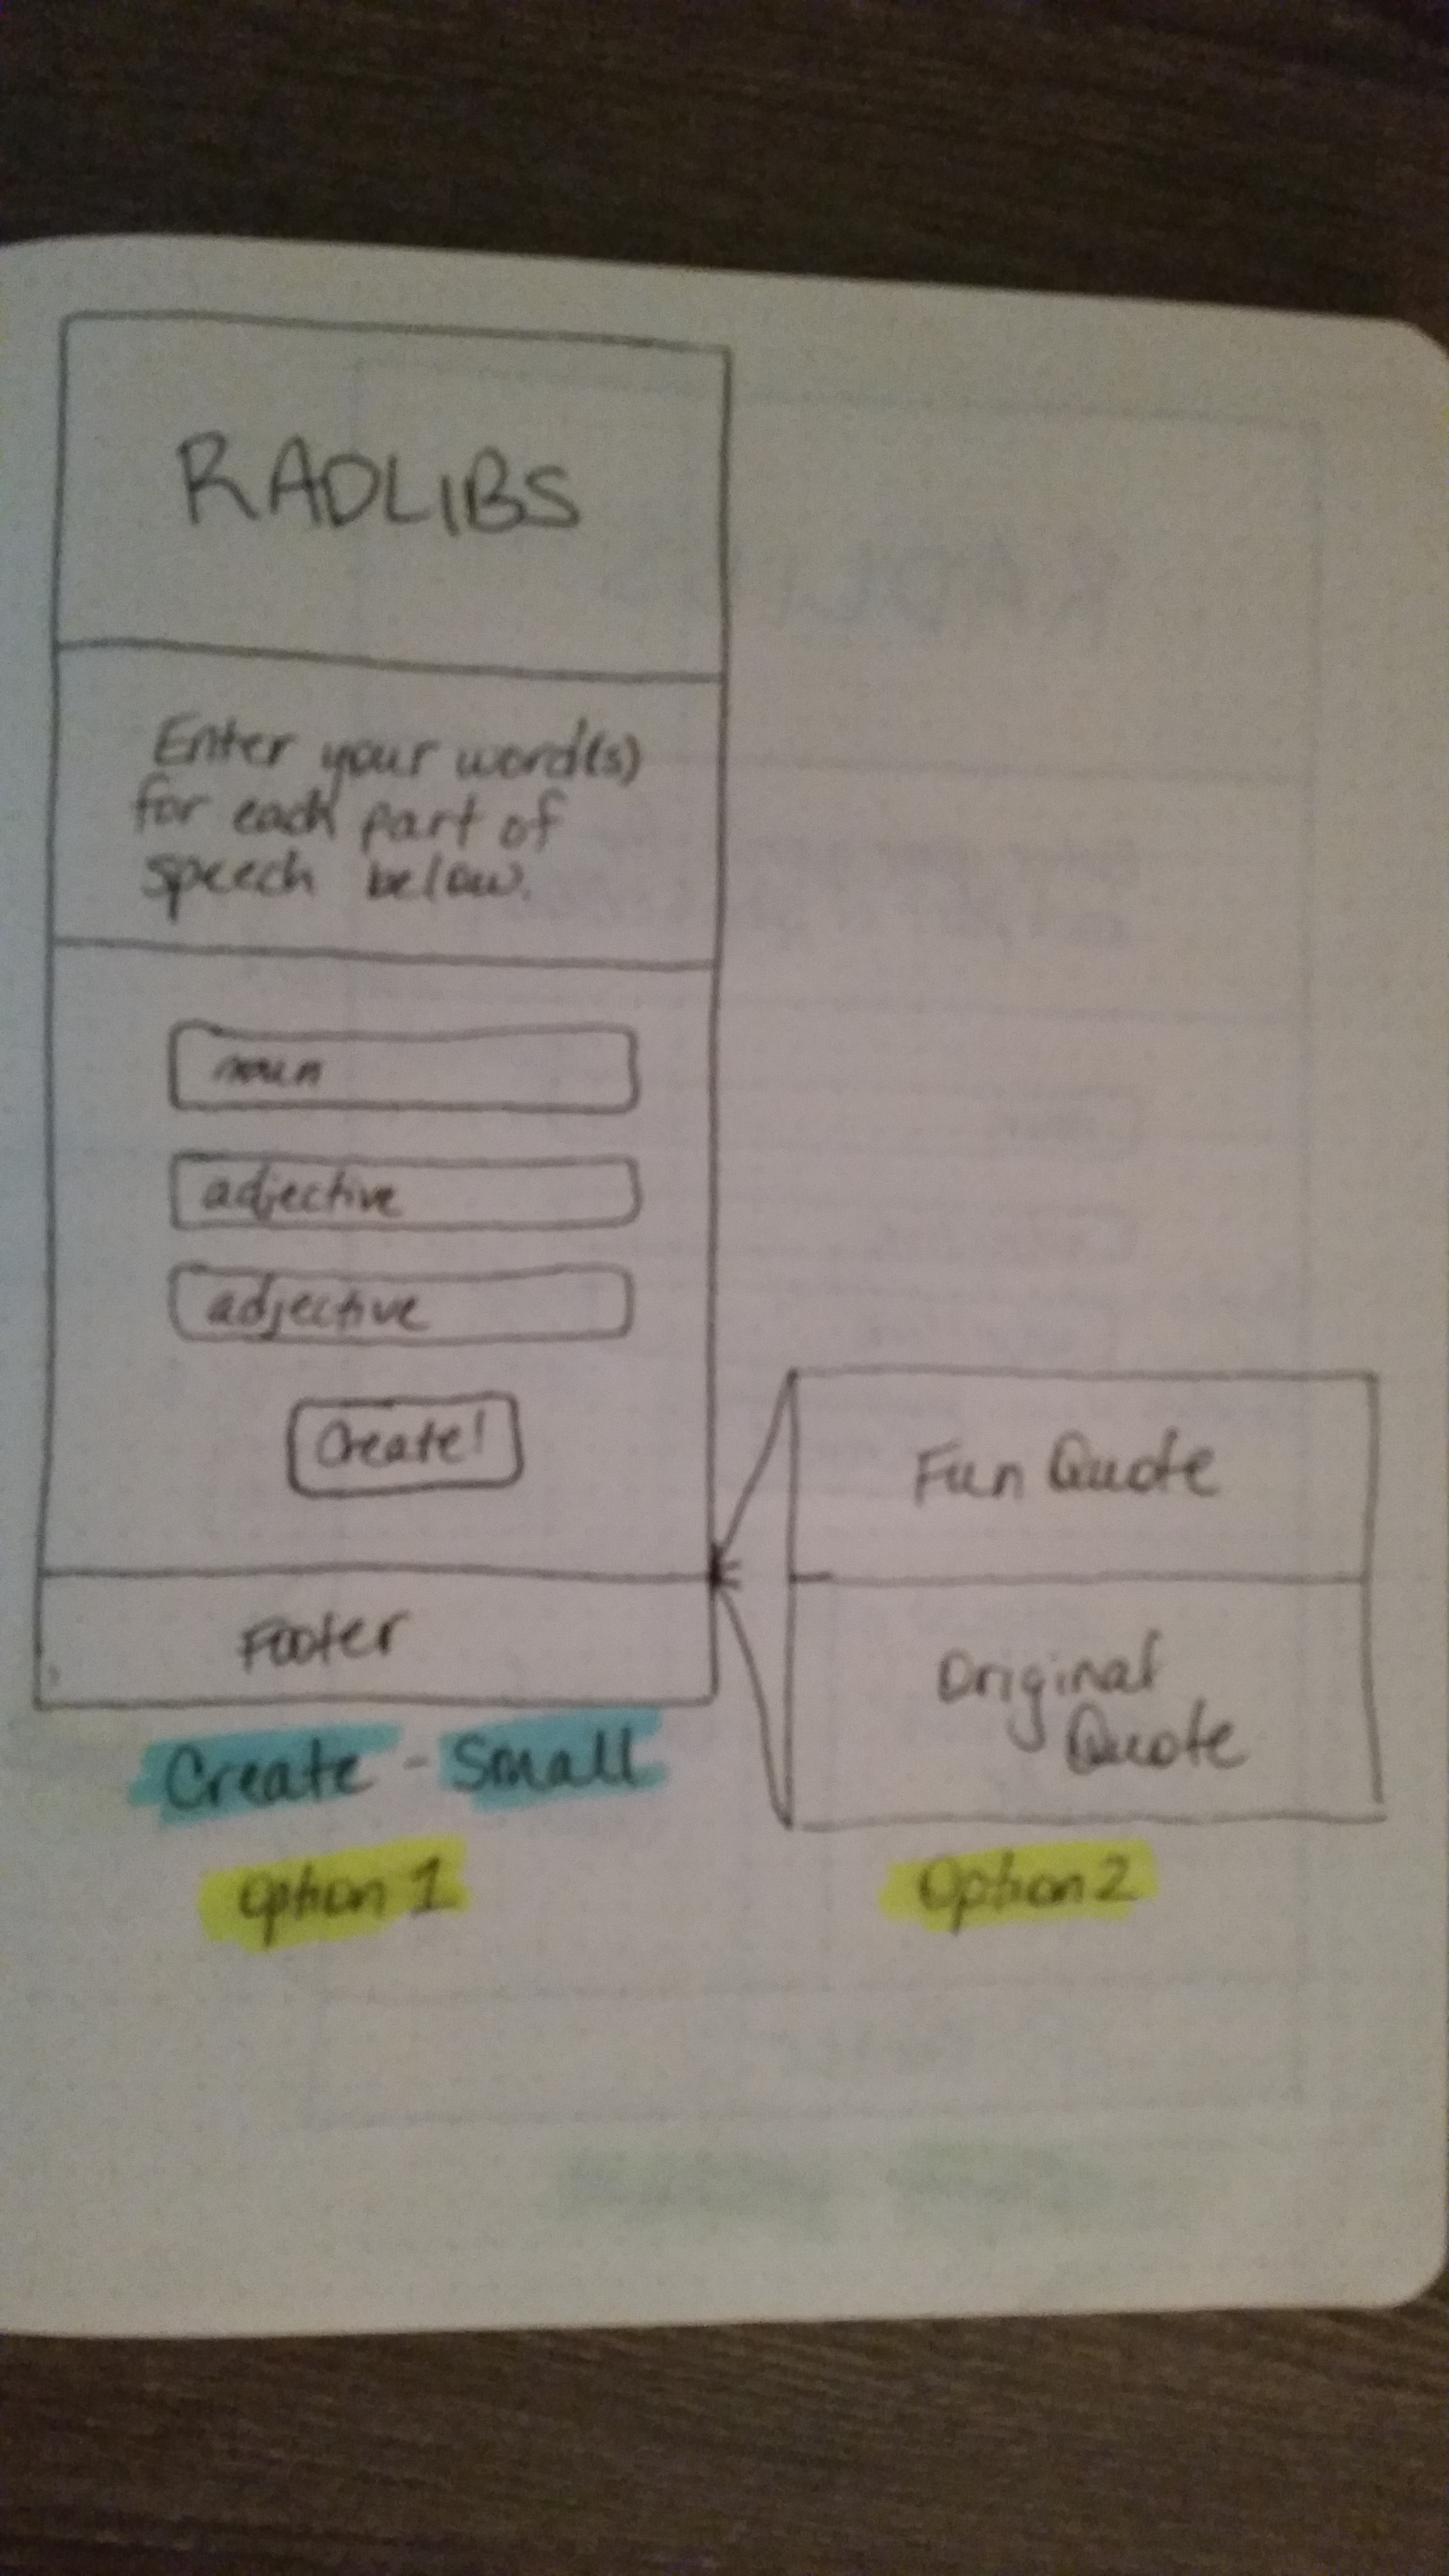 RADLIBS
Enter your word(s)
for each part of
speech below.
noun
adjective
adjective
Create!
Footer
Create - Small
Option 1
Fun Quote
Original
Quote
Option 2